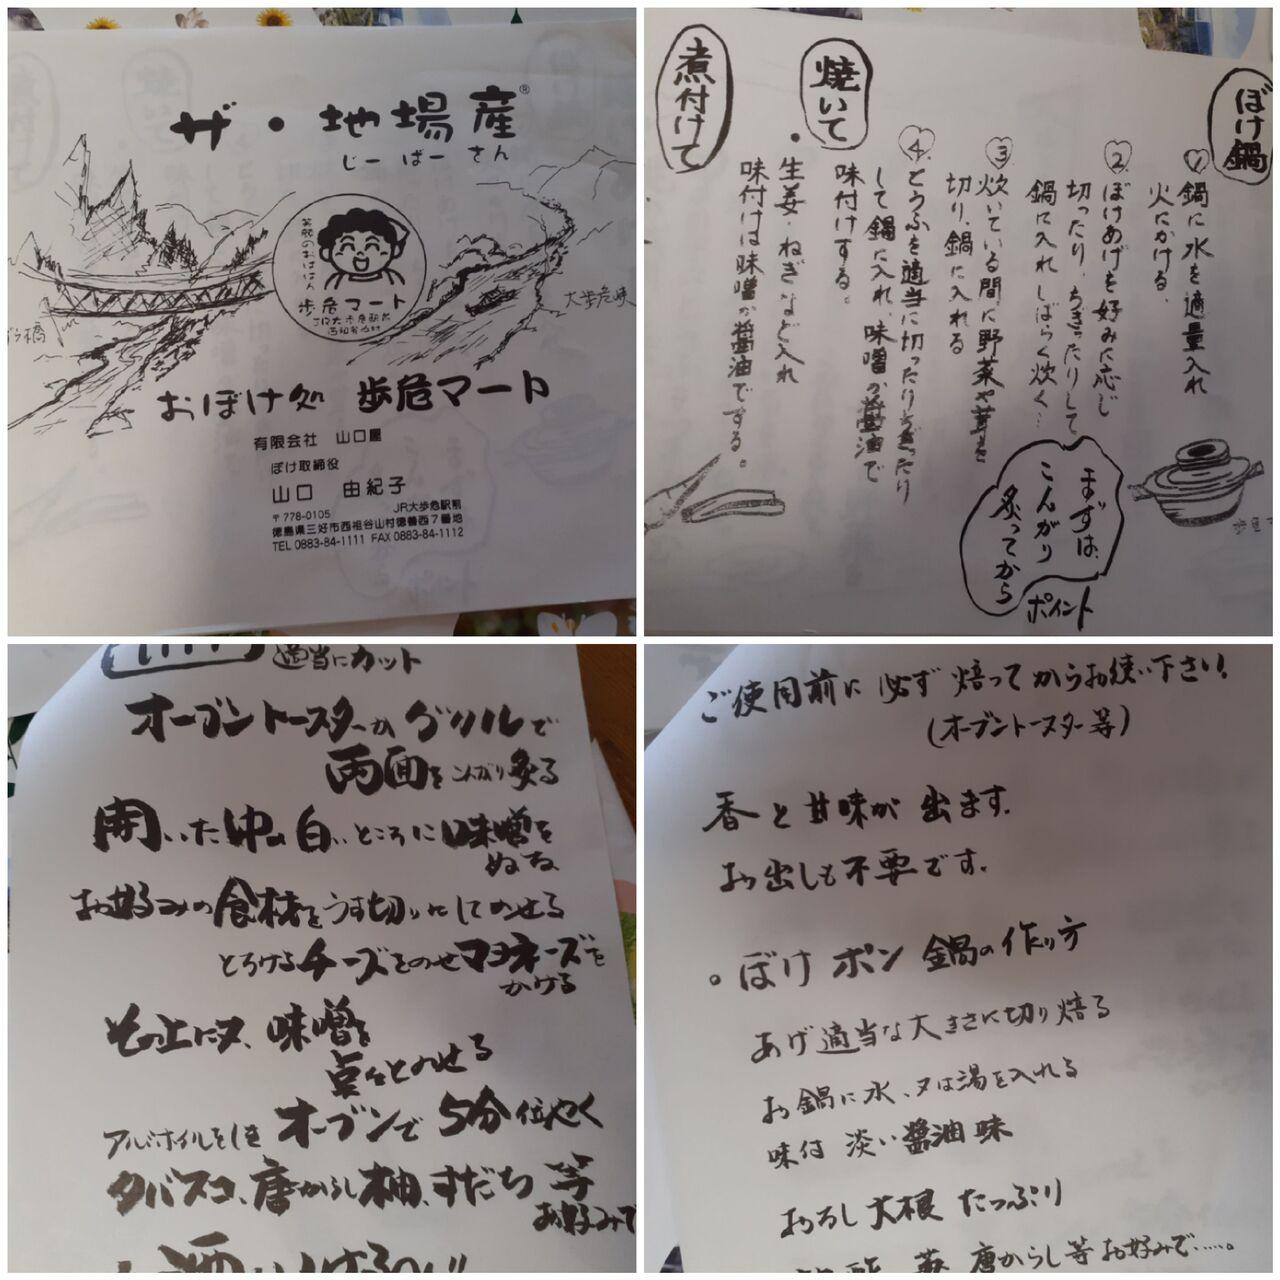 ザ・地場産®
じーばーさん
笑顔のおばはん
歩危マート
大歩危峡
おぼけ処 歩危マート
有限会社 山口屋
ぼけ取締役
山口 由紀子
〒778-0105 JR大歩危駅前
徳島県三好市西祖谷山村徳善西7番地
TEL 0883-84-1111 FAX 0883-84-1112
ぼけ鍋
①鍋に水を適量入れ
火にかける、
②ぼけあげを好みに応じ
切ったり、ちぎったりして
鍋に入れしばらく炊く…
③炊いている間に野菜や茸を
切り、鍋に入れる
④とうふを適当に切ったりちぎったり
して鍋に入れ、味噌か醤油で
味付けする。
焼いて
・生姜・ねぎなど入れ
味付けは味噌か醤油でする。
煮付けて
まずは、
こんがり
炙ってから
ポイント
適当にカット
オーブントースターかグリルで
両面をこんがり炙る
開いた中の白いところに味噌を
ぬる
お好みの食材をうす切りにしてのせる
とろけるチーズをのせマヨネーズを
かける
その上に又、味噌を
点々とのせる
アルミホイルをしき オーブンで5分位やく
タバスコ、唐がらし、柚、すだち 等
お好みで
ご使用前に 必ず 焙ってからお使い下さい。
(オーブントースター等)
香と甘味が 出ます。
お出しも不要です。
。ぼけ ポン 鍋の作り方
あげ適当な大きさに切り焙る
お鍋に水、又は湯を入れる
味付 淡い醤油味
おろし大根 たっぷり
唐からし等 お好みで……。